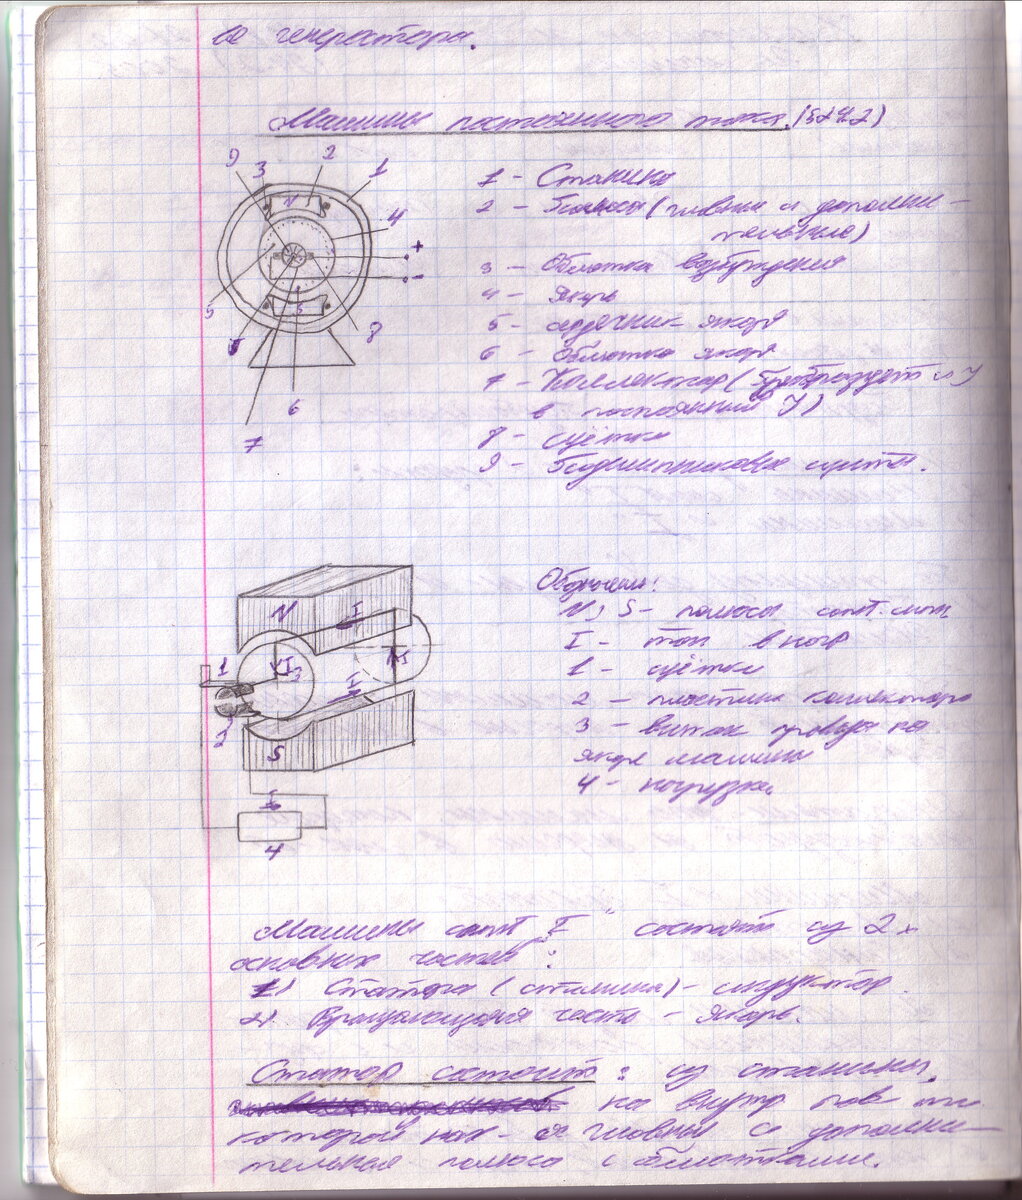 генератора.
Машины постоянного тока. (§24.2)
9
3
2
1
4
+
-
5
8
6
7
1 - Станина
2 - Полюсы (главные и дополни-
тельные)
3 - Обмотка возбуждения
4 - Якорь
5 - сердечник якоря
6 - Обмотка якоря
7 - Коллектор (
в постоянный
8 - щётки
9 - Подшипниковые щиты.
N
S
N
I
1
I
3
I
I
2
S
I
4
Обозначен:
N, S - полюсы
I - ток в
1 - щётки
2 - пластины коллектора
3 - виток провода на
якоре машины
4 - нагрузка
Машины I состоят из 2х
основных частей:
1) Статора (станина) - индуктор
2) Вращающаяся часть - Якорь.
Статор состоит: из станины,
на внутр пов-ти
которой нах-ся главные и дополни-
тельная полюса с обмотками.